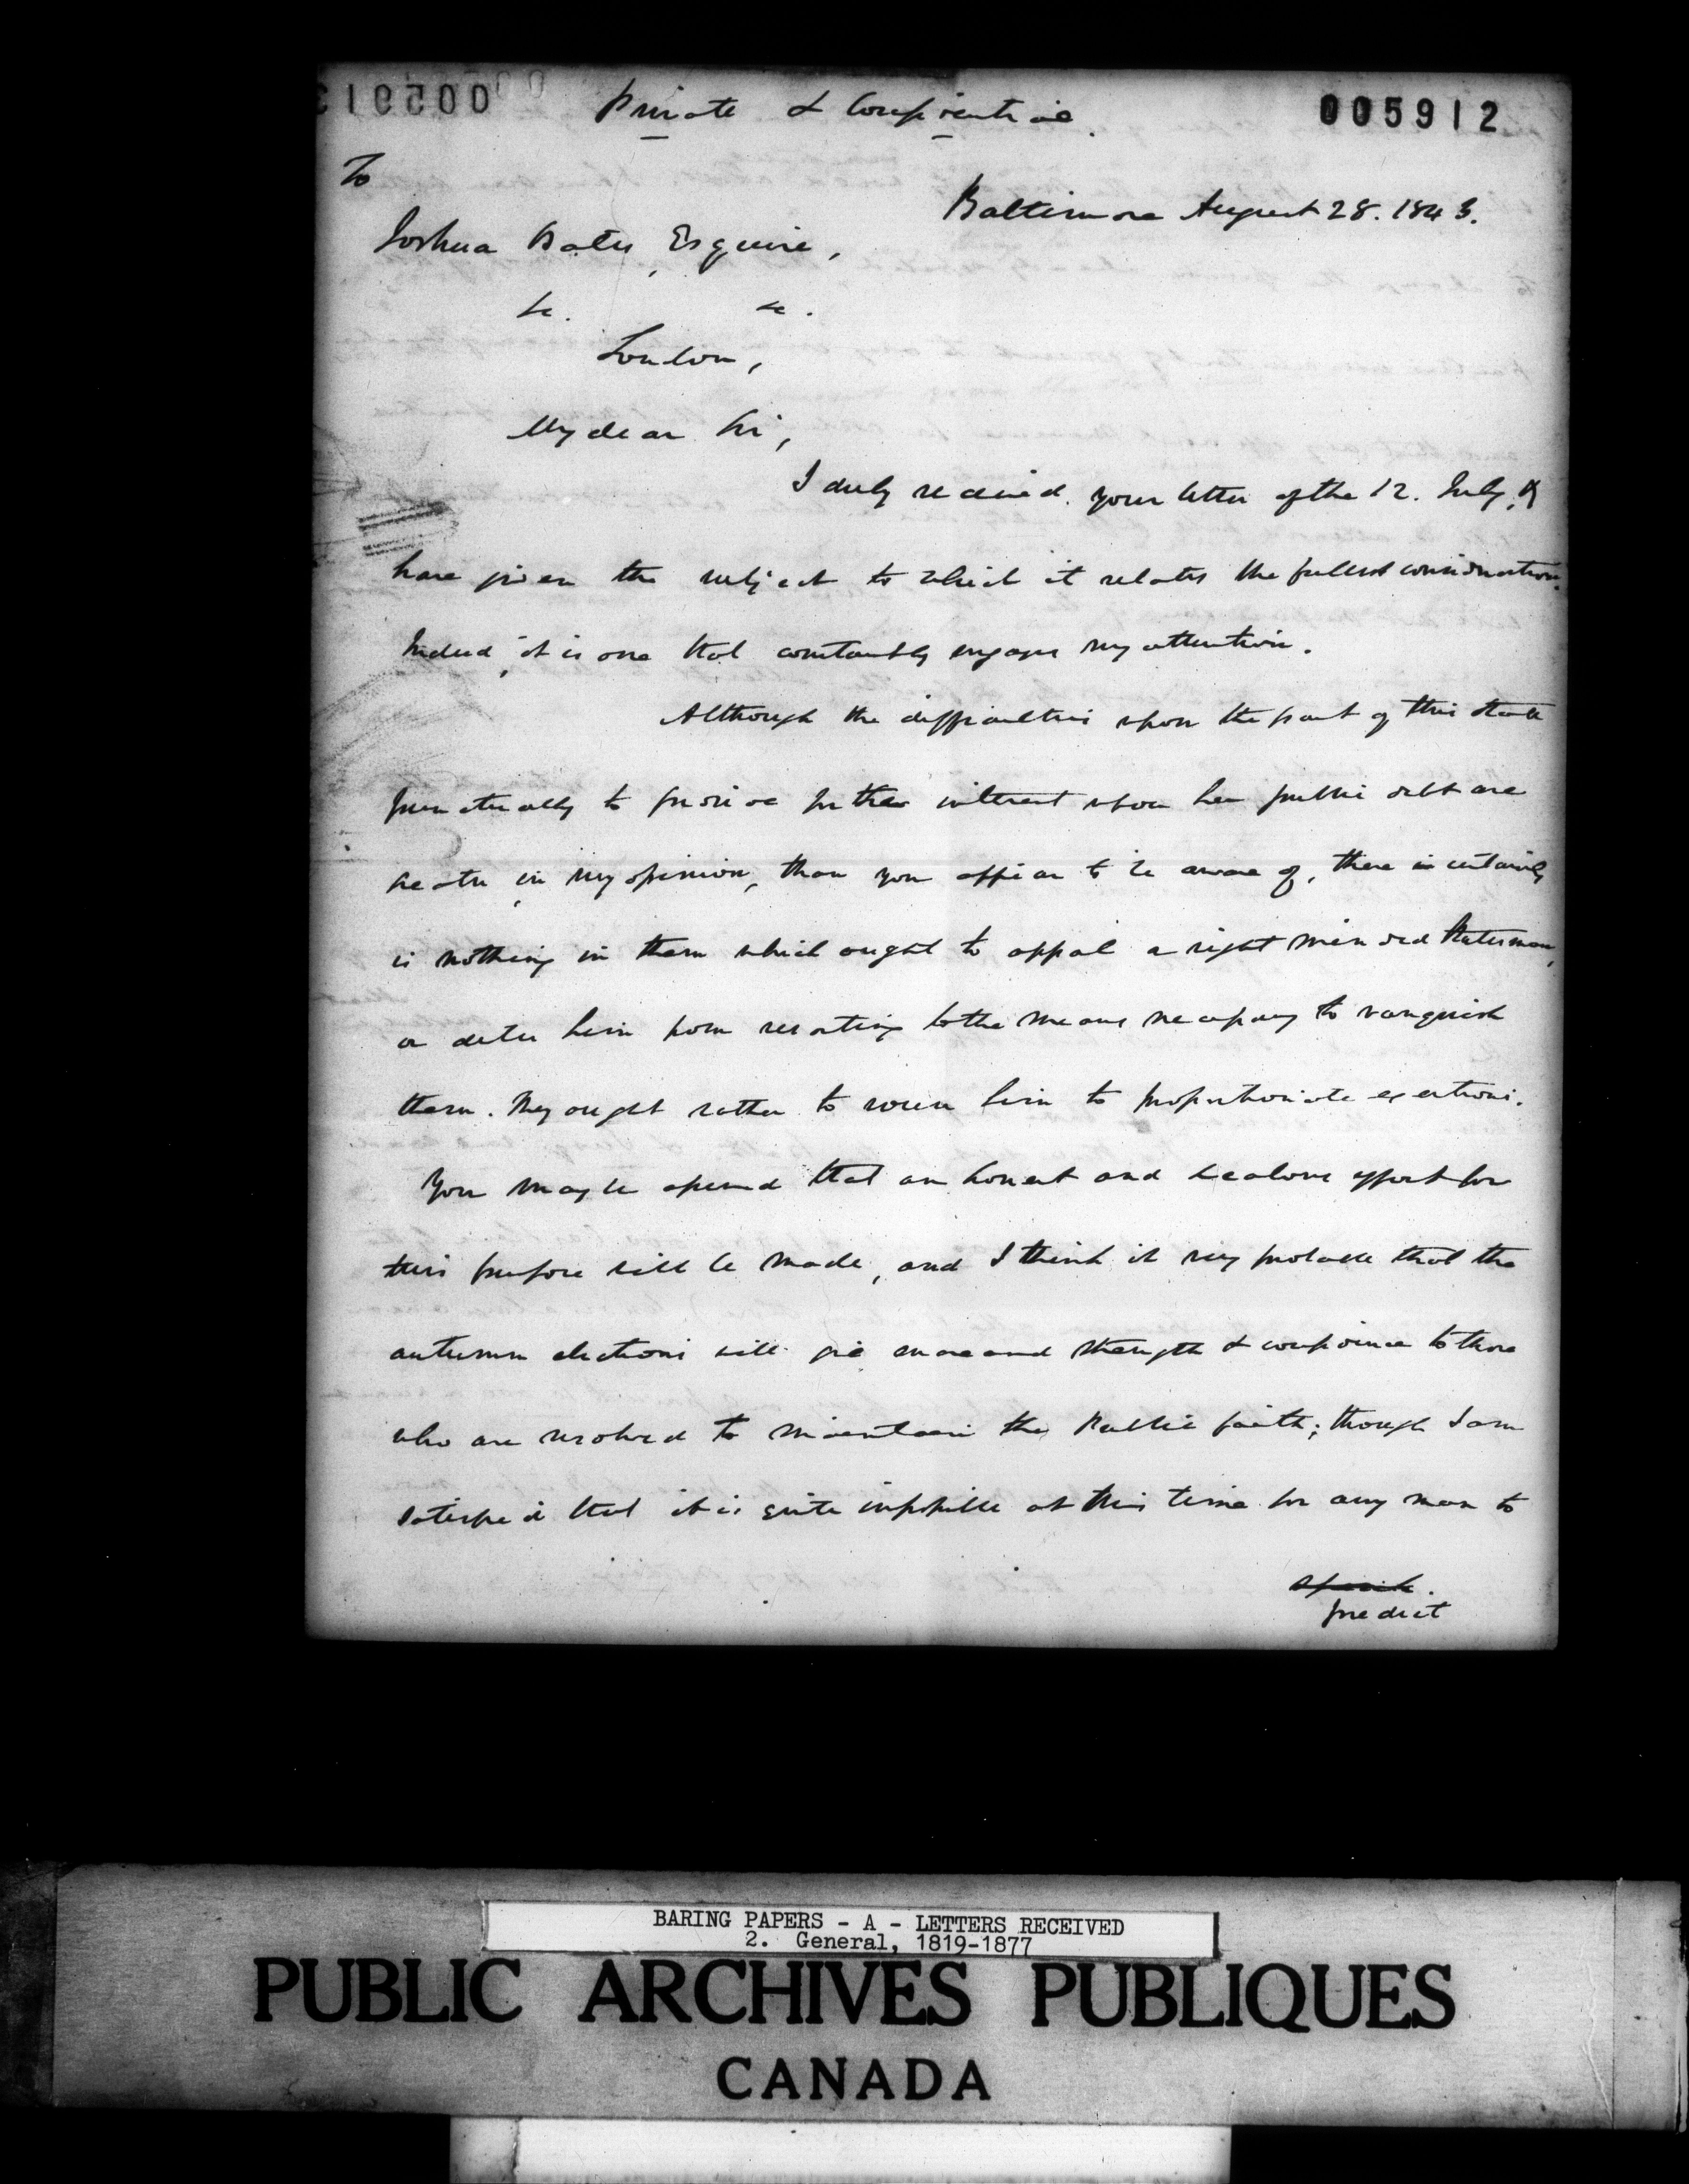 005912
Private & Confidential.
To
Baltimore August 28. 1843.
Joshua Bates, Esquire,
&c. &c.
London,
My dear Sir,
I duly received your letter of the 12. July, &
have given the subject to which it relates the fullest consideration.
Indeed, it is one that constantly engages my attention.
Although the difficulties upon the part of this State
punctually to provide for the interest upon her public debt are
greater, in my opinion, than you appear to be aware of, there is certainly
is nothing in them which ought to appal a right minded Statesman,
or deter him from resorting to the means necessary to vanquish
them. They ought rather to rouse him to proportionate exertions.
You may be assured that an honest and zealous effort for
this purpose will be made, and I think it very probable that the
autumn elections will give more and strength & confidence to those
who are resolved to maintain the Public faith; though I am
satisfied that it is quite impossible at this time for any man to
predict
BARING PAPERS - A - LETTERS RECEIVED
2. General, 1819-1877
PUBLIC ARCHIVES PUBLIQUES
CANADA